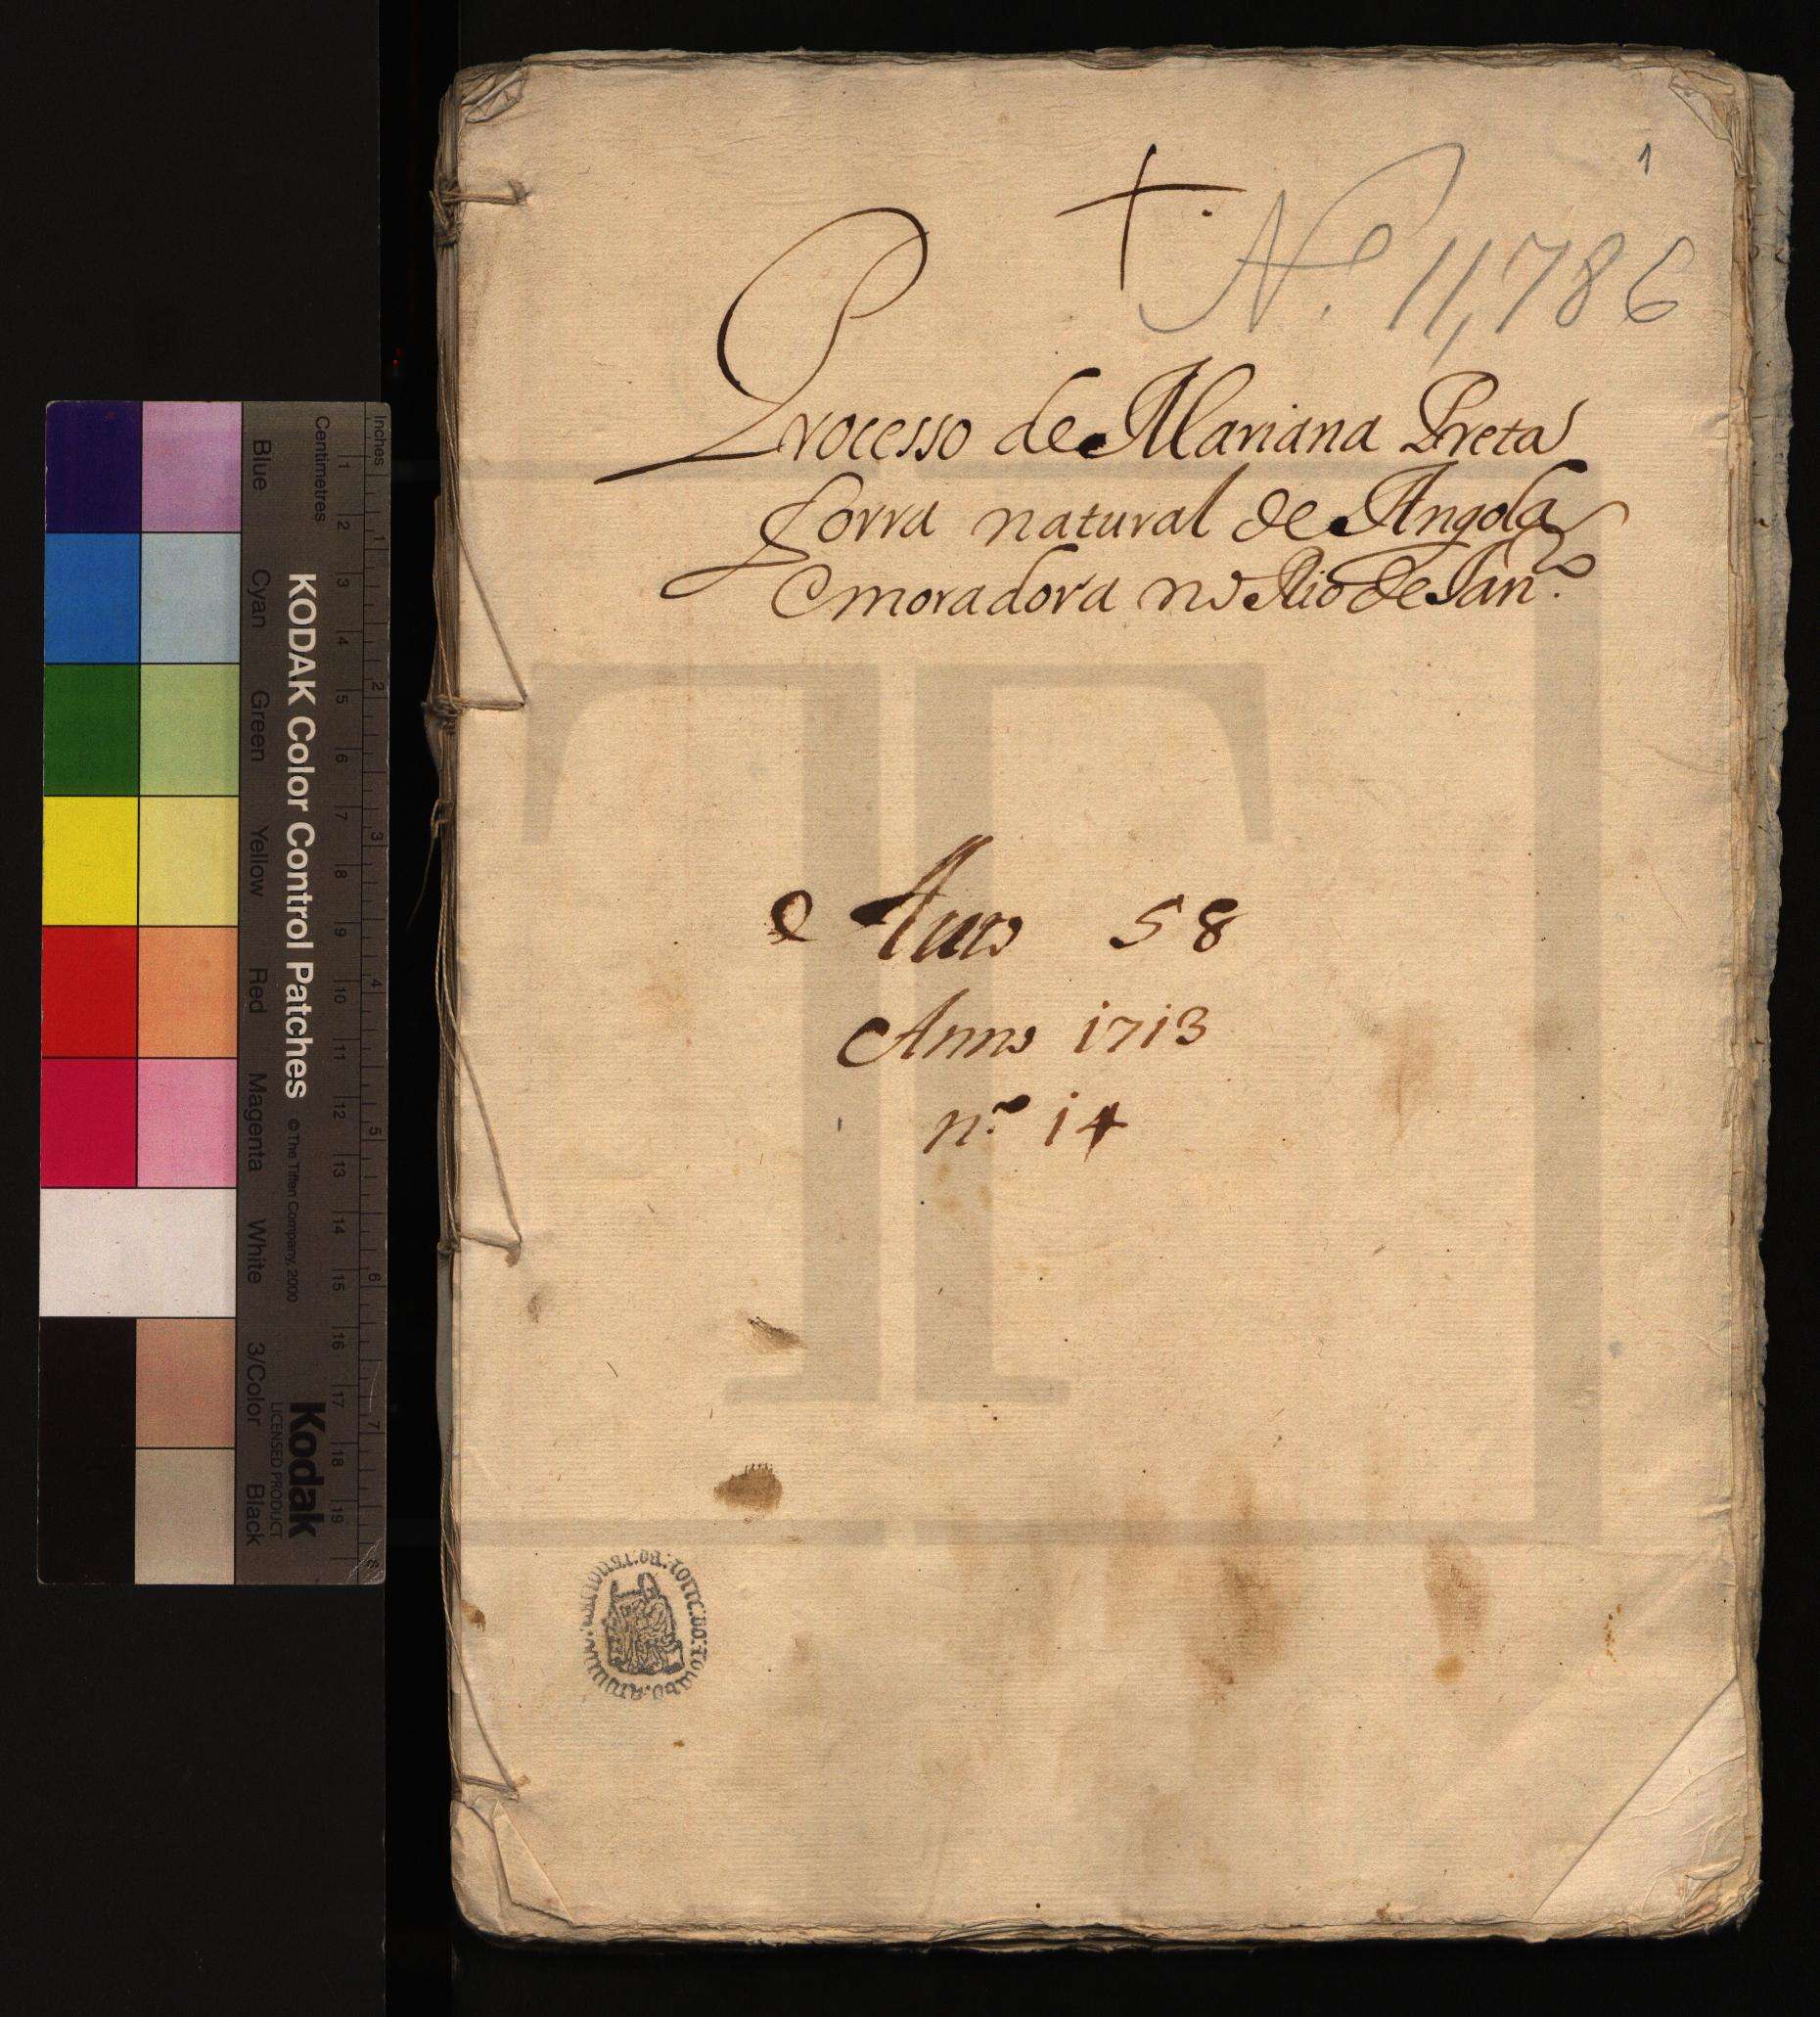 1
Nº. 11,786
Processo de Mariana Preta
forra natural de Angola
e moradora no Rio de Jan.º
Auto 58
Anno 1713
n.º 14
Inches
Centimetres
1 2 3 4 5 6 7 8
1 2 3 4 5 6 7 8 9 10 11 12 13 14 15 16 17 18 19
KODAK Color Control Patches © The Tiffen Company, 2000
Kodak
LICENSED PRODUCT
Blue Cyan Green Yellow Red Magenta White 3/Color Black
TT